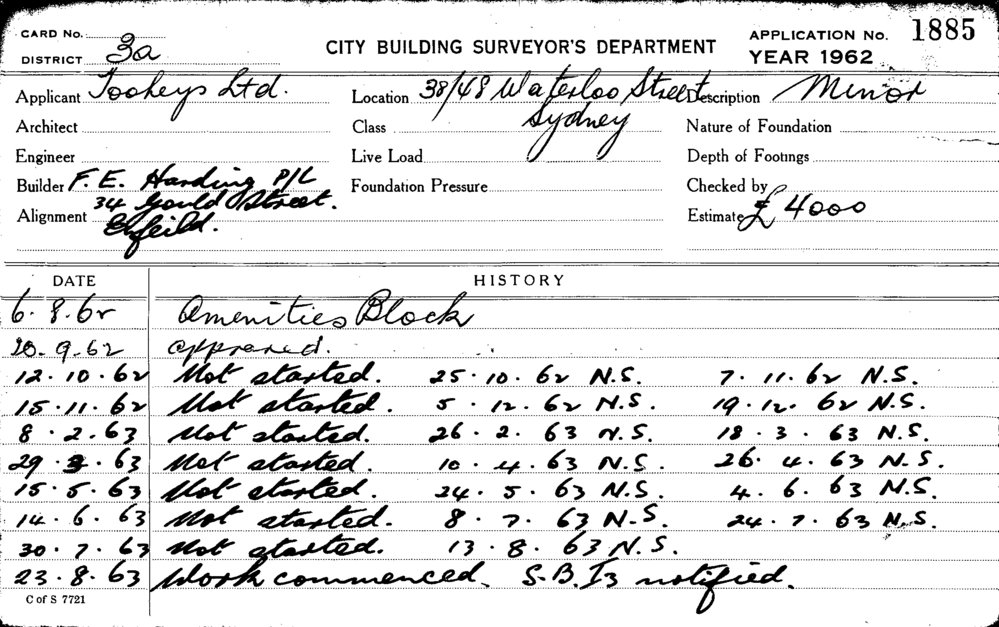 CARD No.
DISTRICT 3a
CITY BUILDING SURVEYOR'S DEPARTMENT
APPLICATION No. 1885
YEAR 1962
Applicant Tooheys Ltd.
Location 38/48 Waterloo Street Sydney
Description Minor
Architect
Class
Nature of Foundation
Engineer
Live Load
Depth of Footings
Builder F. E. Harding P/L
34 Gould Street.
Foundation Pressure
Checked by
Alignment
Estimate £ 4000
DATE HISTORY
6.8.62 Amenities Block
20.9.62 approved.
12.10.62 Not started. 25.10.62 N.S. 7.11.62 N.S.
15.11.62 Not started. 5.12.62 N.S. 19.12.62 N.S.
8.2.63 Not started. 26.2.63 N.S. 18.3.63 N.S.
29.3.63 Not started. 10.4.63 N.S. 26.4.63 N.S.
15.5.63 Not started. 24.5.63 N.S. 4.6.63 N.S.
14.6.63 Not started. 8.7.63 N.S. 24.7.63 N.S.
30.7.63 Not started. 13.8.63 N.S.
23.8.63 Work commenced. S.B.I3 notified.
C of S 7721